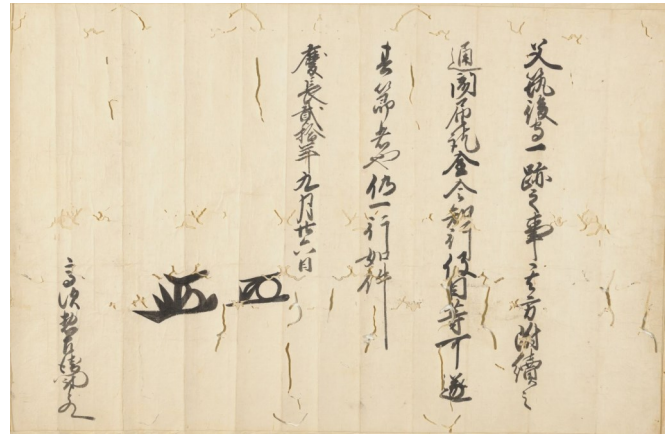 父筑後守一跡之事其方附續之
通聞届訖全令知行役目等可遂
其節者也仍一行如件
慶長貳拾年九月廿六日